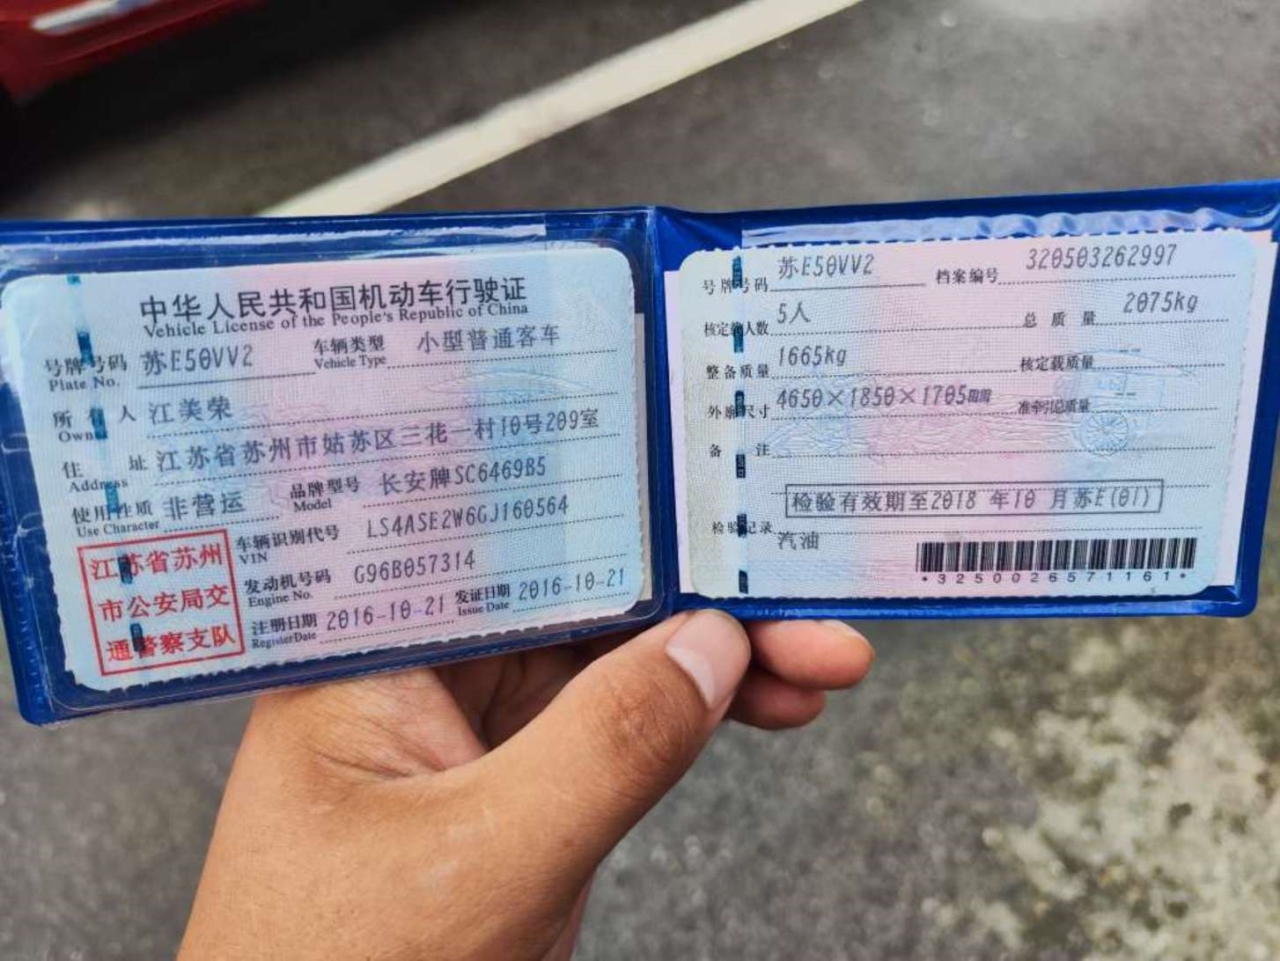 中华人民共和国机动车行驶证
Vehicle License of the People's Republic of China
号牌号码 苏E50VV2 车辆类型 小型普通客车
Plate No. Vehicle Type
所有人 江美荣
Owner
住址 江苏省苏州市姑苏区三花一村10号209室
Address
使用性质 非营运 品牌型号 长安牌SC6469B5
Use Character Model
江苏省苏州
市公安局交
通警察支队
车辆识别代号 LS4ASE2W6GJ160564
VIN
发动机号码 G96B057314
Engine No.
注册日期 2016-10-21 发证日期 2016-10-21
Register Date Issue Date
号牌号码 苏E50VV2 档案编号 320503262997
核定载人数 5人 总质量 2075kg
整备质量 1665kg 核定载质量 --
外廓尺寸 4650×1850×1705mm 准牵引总质量 --
备注
检验有效期至2018 年10 月苏E(01)
检验记录
汽油
*3250026571161*